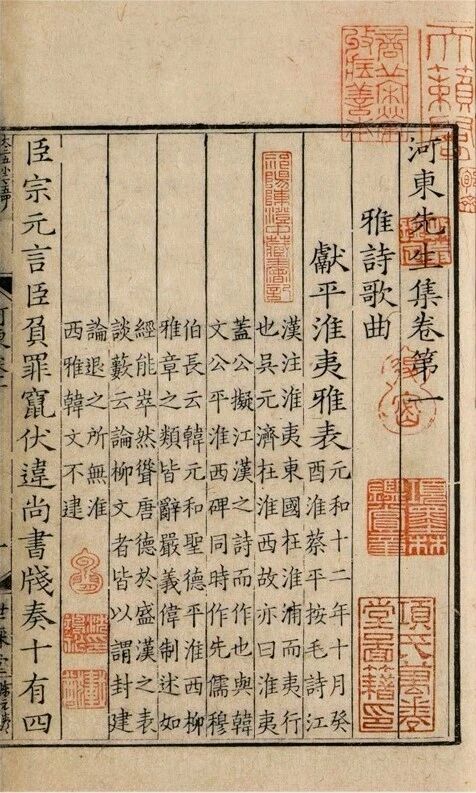 河東先生集卷第一
雅詩歌曲
獻平淮夷雅表
元和十二年十月癸
酉淮蔡平按毛詩江
漢注淮夷東國在淮浦而夷行
也吳元濟在淮西故亦曰淮夷
蓋公擬江漢之詩而作也與韓
文公平淮西碑同時作先儒穆
伯長云韓元和聖德平淮西柳
雅章之類皆辭嚴義偉制述如
經能崒然聳唐德於盛漢之表
談藪云論柳文者皆以謂封建
論退之所無淮
西雅韓文不逮
臣宗元言臣負罪竄伏違尚書牋奏十有四
世綵堂
天籟閣
祁陽陳澄中藏書記
項墨林鑑賞章
項氏萬卷堂圖籍印